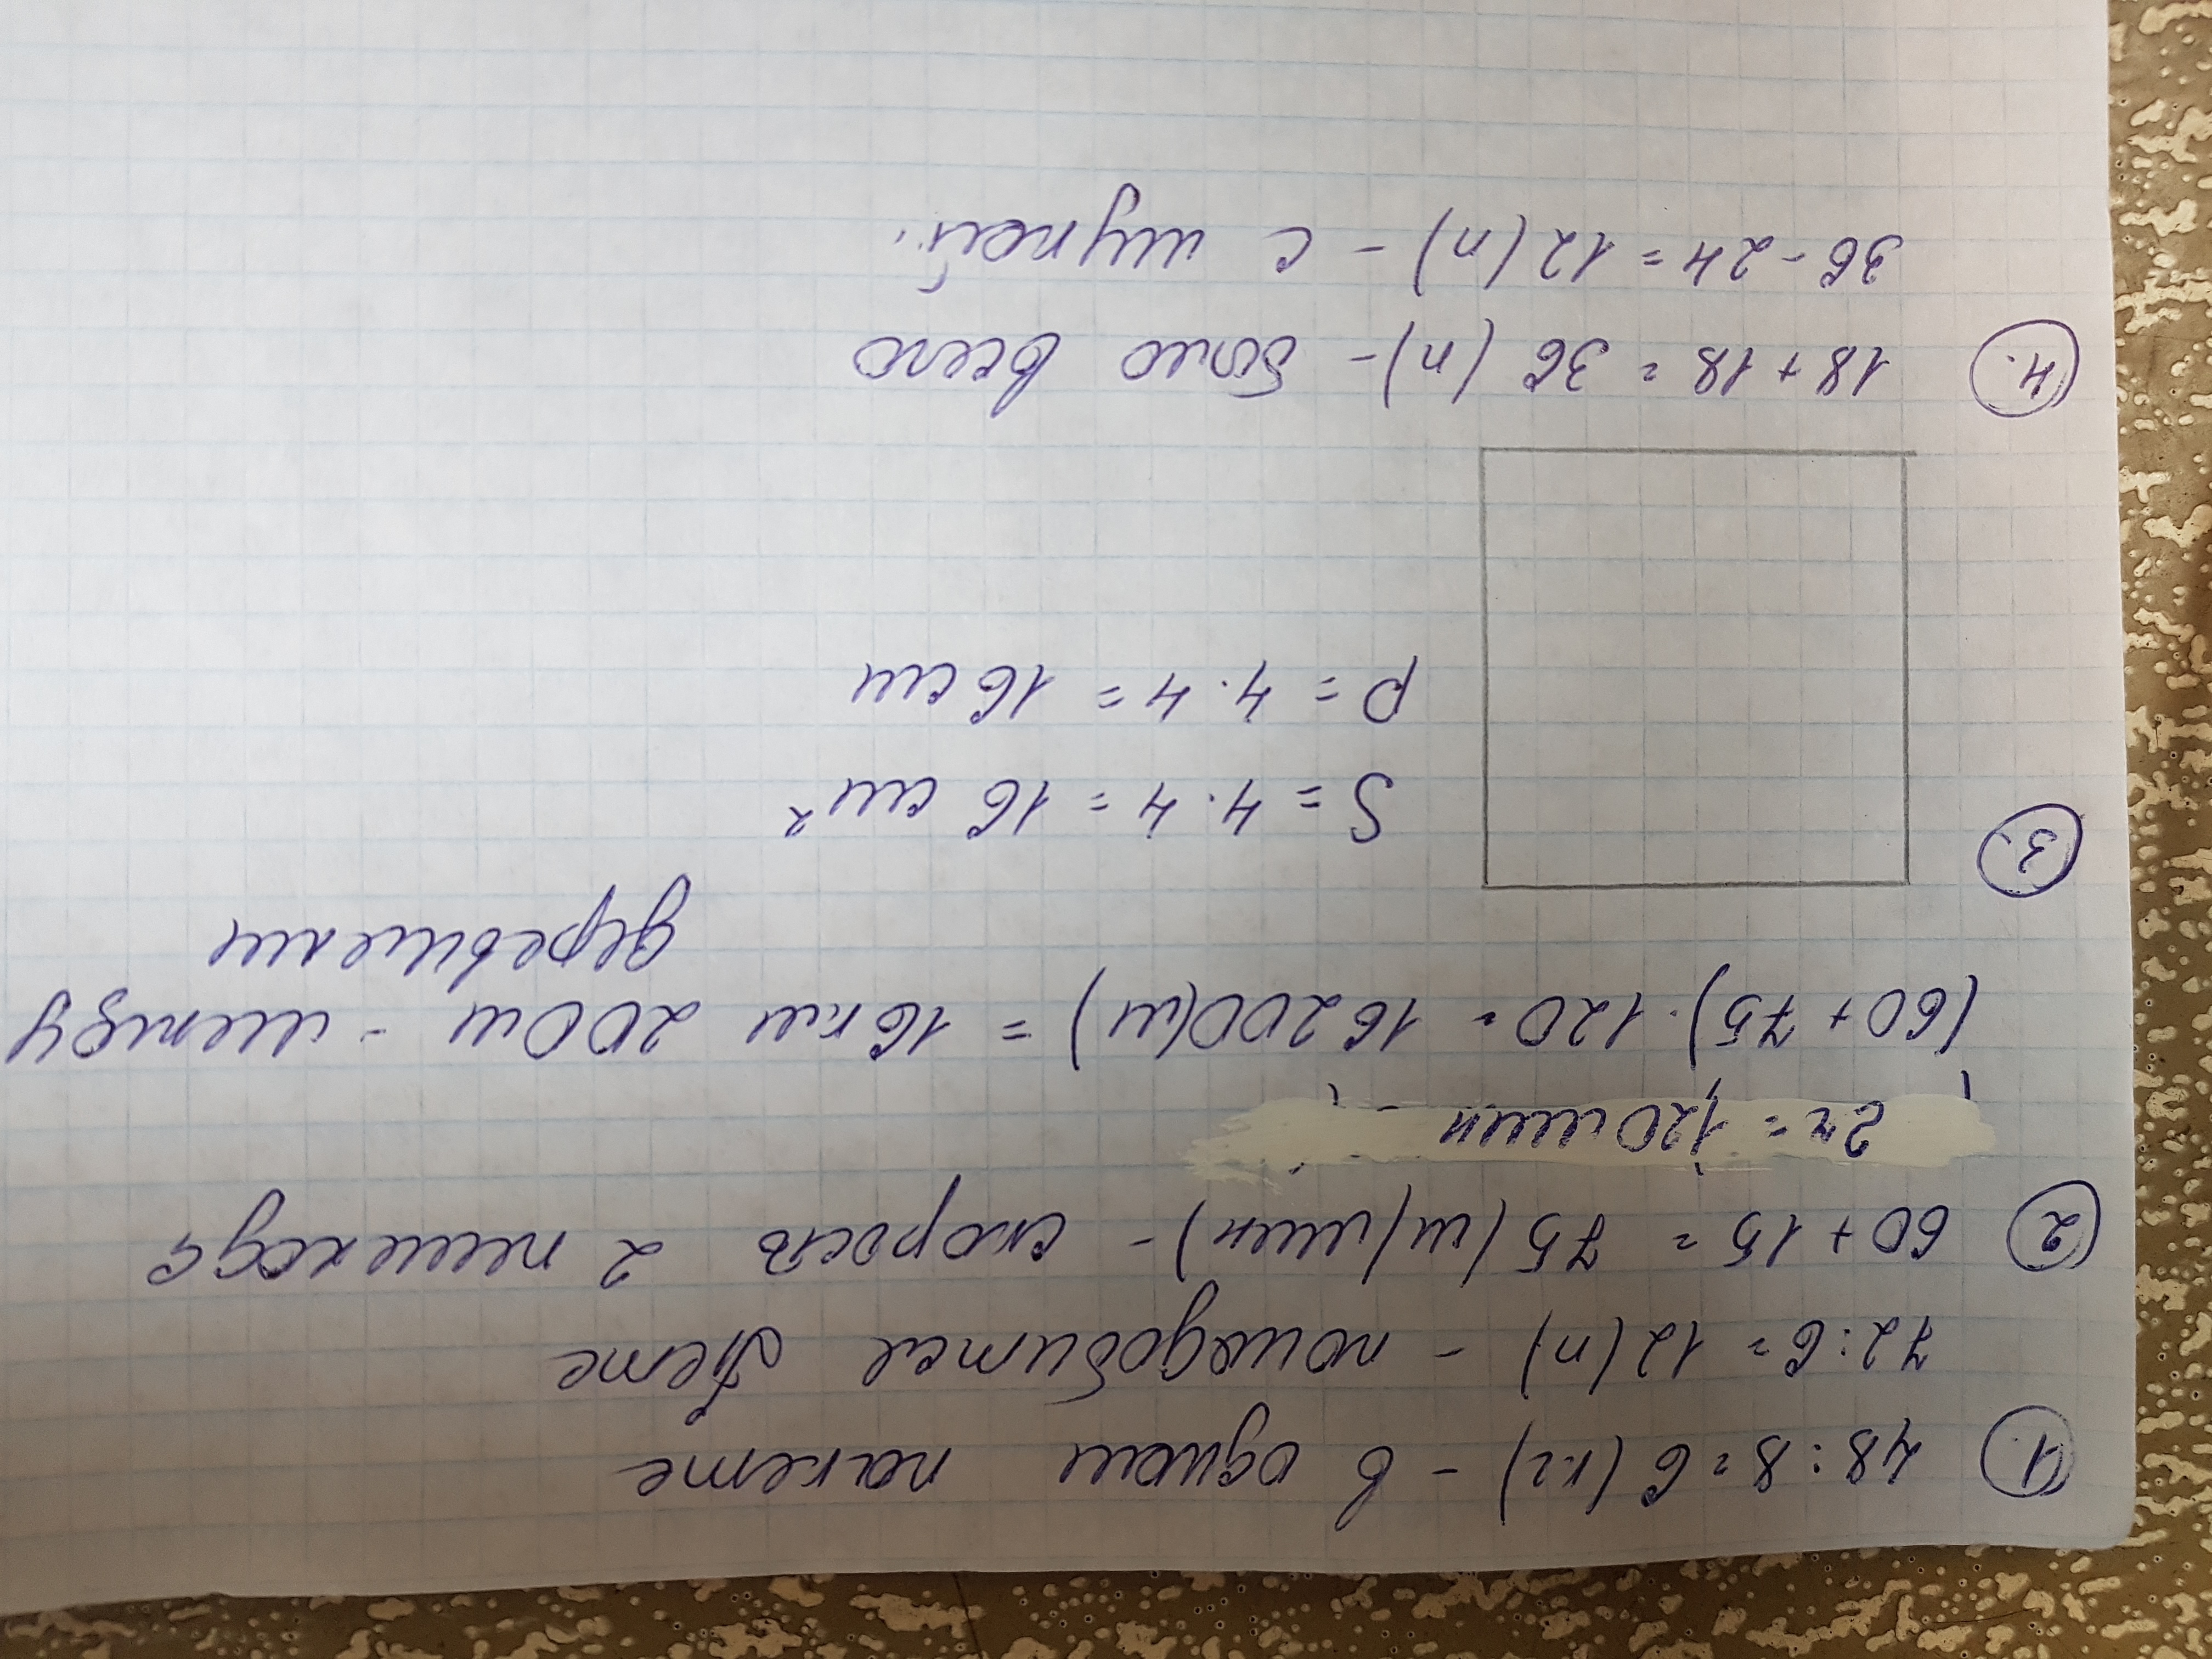 1. 48 : 8 = 6 (кг) - в одном пакете
72 : 6 = 12 (п) - понадобится Свете
2 60 + 15 = 75 (м/мин) - скорость 2 пешехода
2ч = 120мин
(60 + 75) · 120 = 16200 (м) = 16км 200м - между
деревнями
3.
S = 4 · 4 = 16 см²
P = 4 · 4 = 16 см
4. 18 + 18 = 36 (п) - было всего
36 - 24 = 12 (п) - с